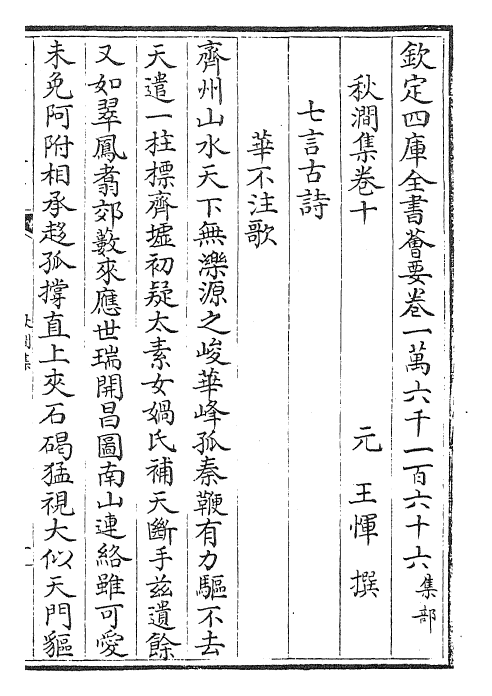 欽定四庫全書薈要卷一萬六千一百六十六集部
秋澗集卷十　元　王惲　撰
七言古詩
華不注歌
齊州山水天下無濼源之峻華峰孤秦鞭有力驅不去
天遣一柱標齊墟初疑太素女媧氏補天斷手茲遺餘
又如翠鳳翥郊藪來應世瑞開昌圖南山連絡雖可愛
未免阿附相承趍孤撐直上夾石碣猛視大似天門貙